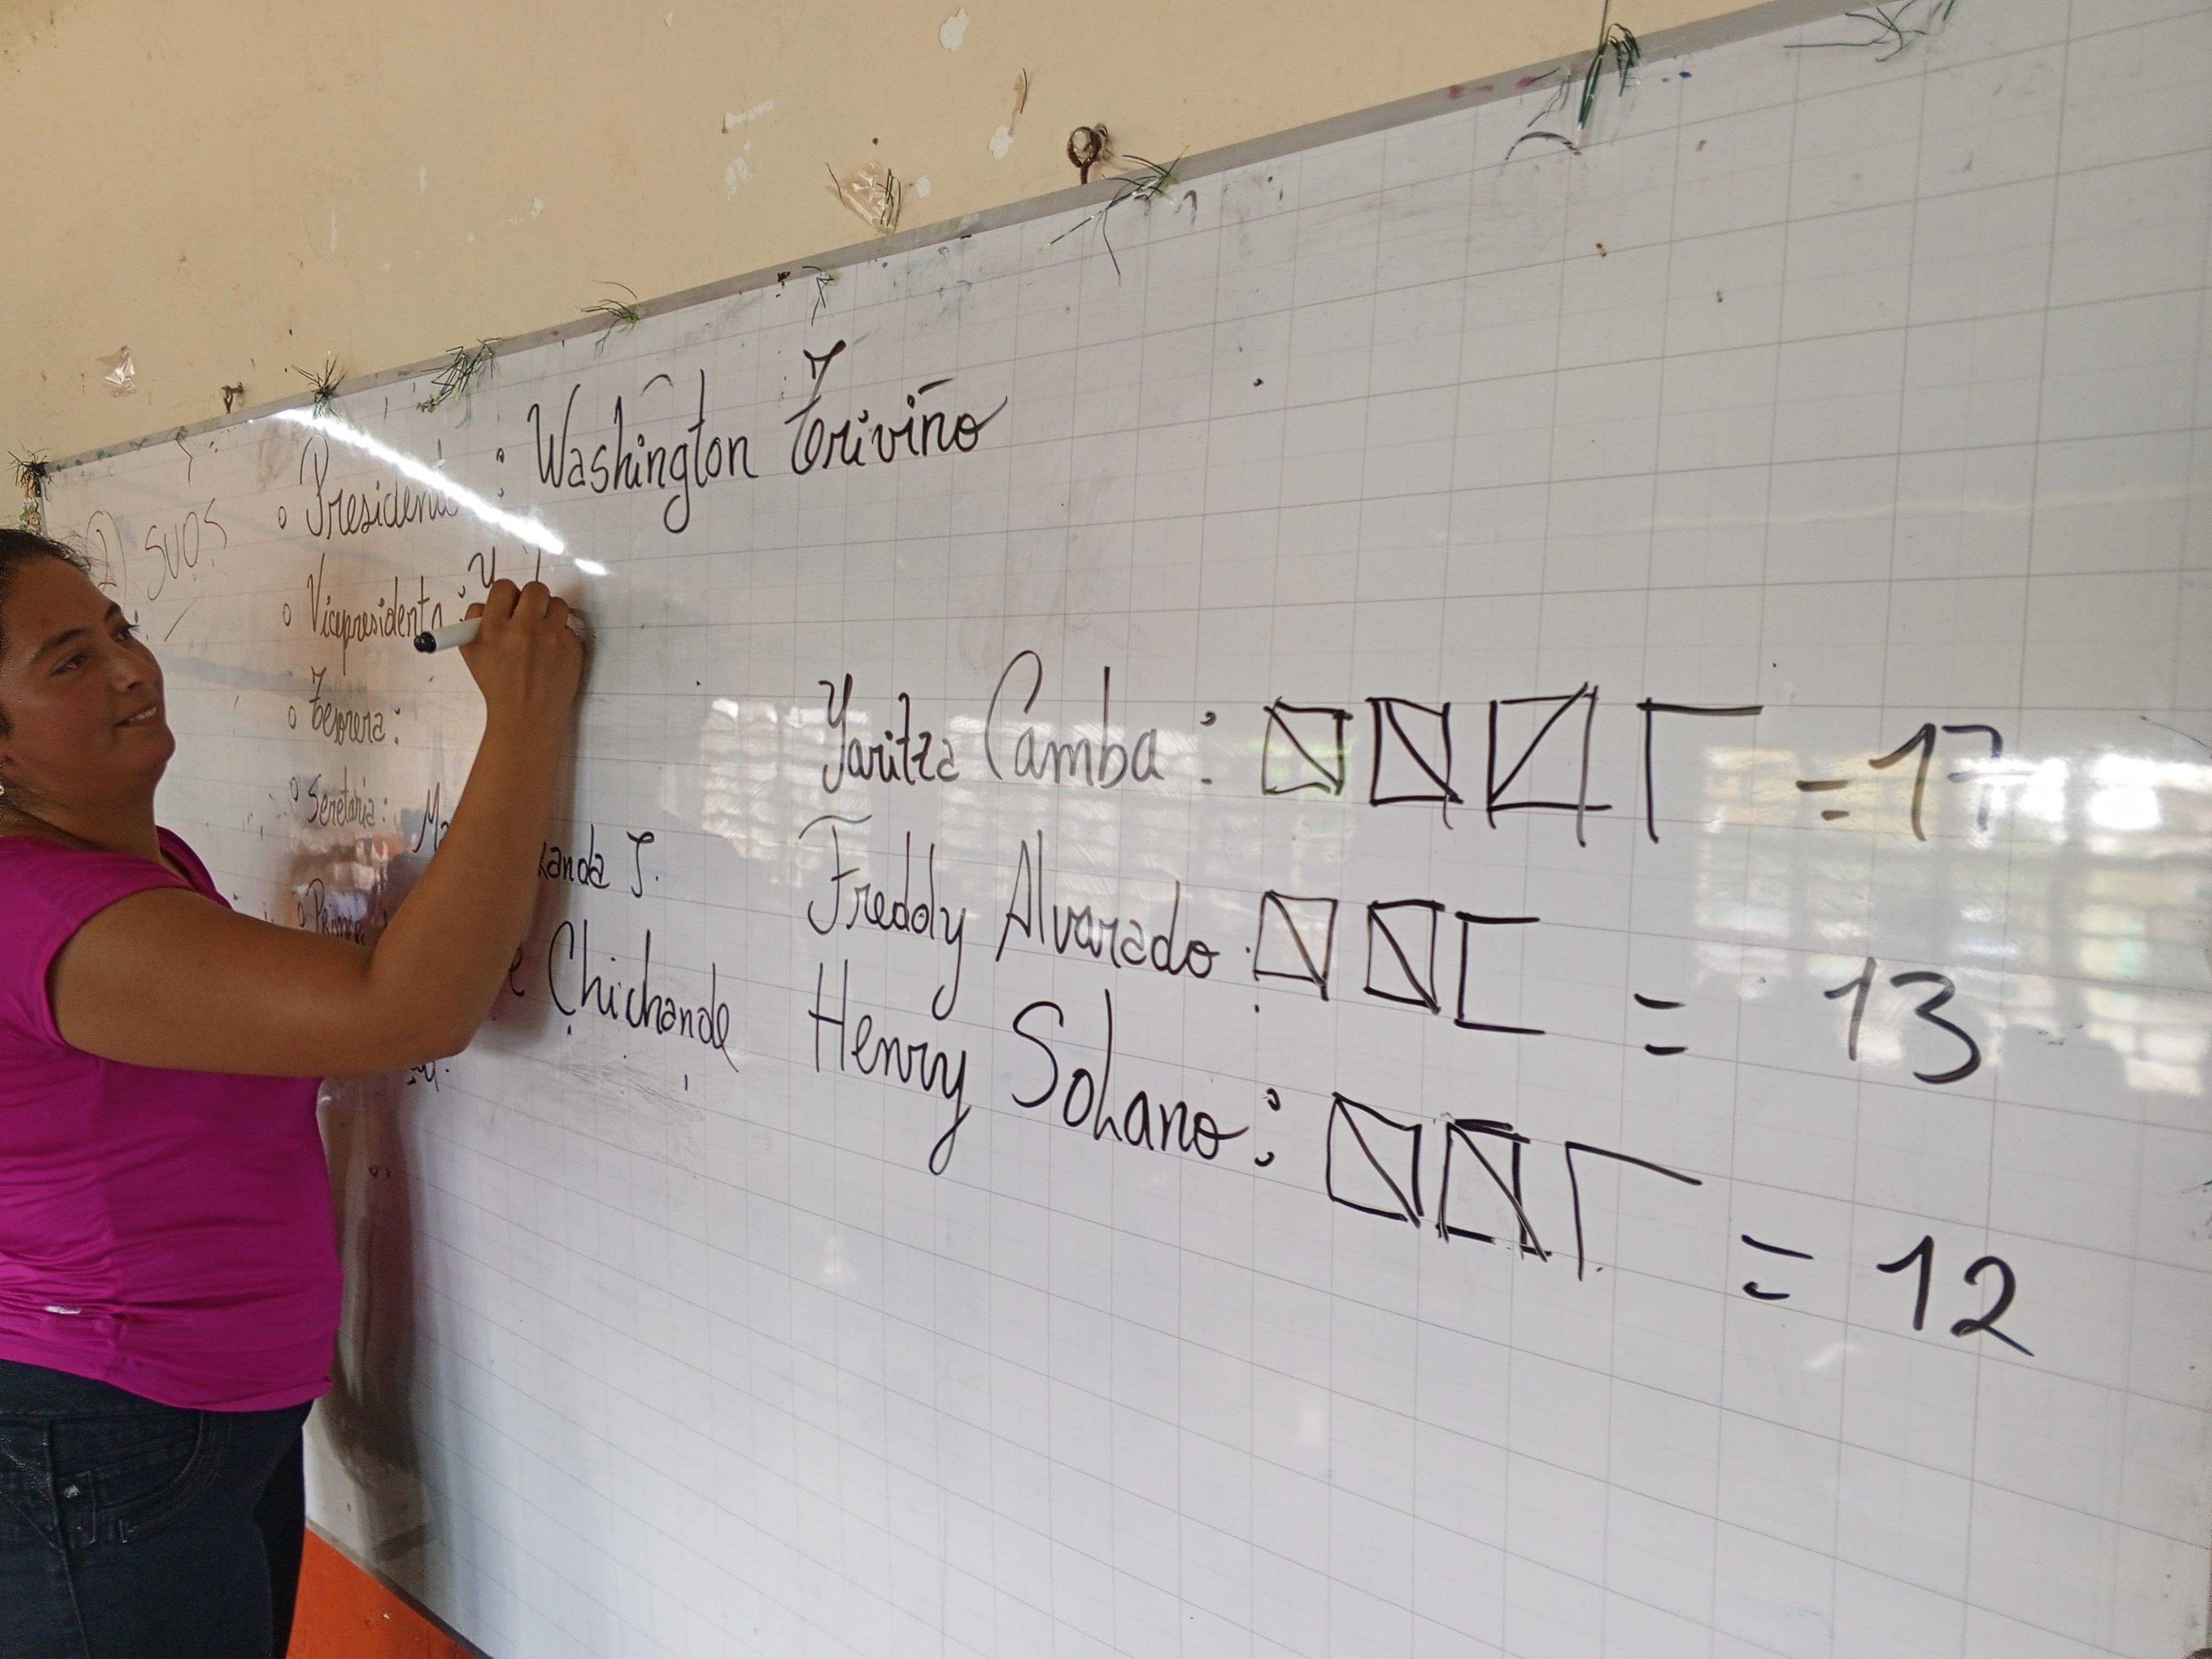 Presidente : Washington Triviño
Vicepresidenta : Y
Tesorera :
Secretaria :
Chichande
Yaritza Camba : = 17
Freddy Alvarado : = 13
Henry Solano : = 12